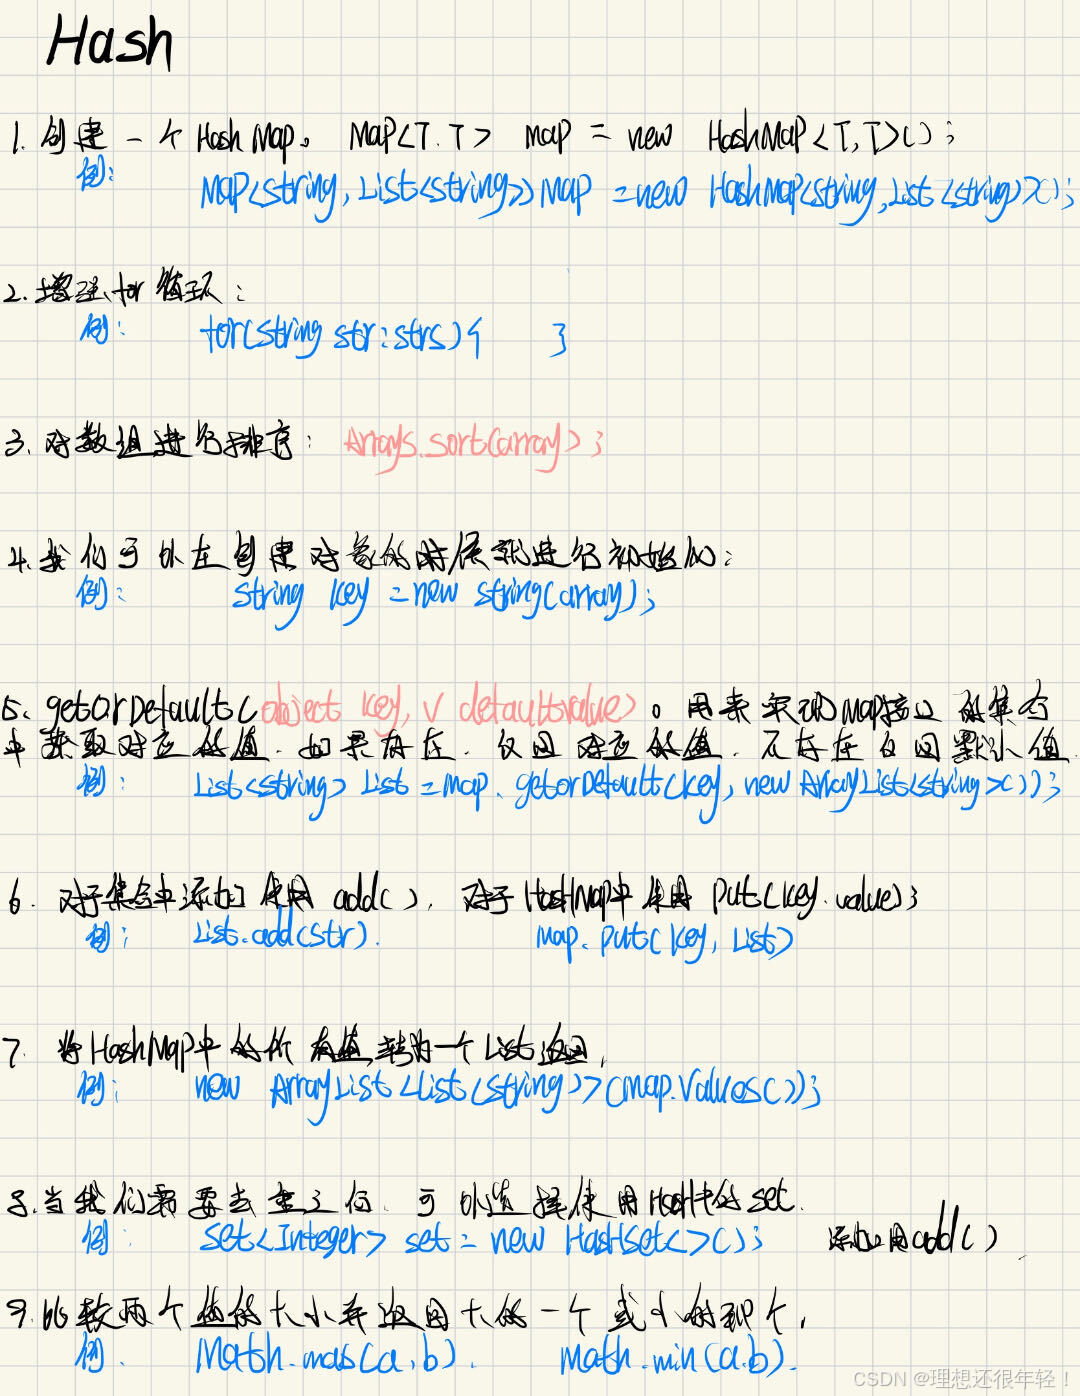 Hash
1. 创建一个HashMap。 Map<T.T> map = new HashMap<T,T>();
例:
Map<string,List<string>> Map = new HashMap<string,List<string>>();
2. 增强for循环:
例: for(string str:strs){ }
3. 对数组进行排序: Arrays.sort(array);
4. 我们可以在创建对象的时候就进行初始化:
例: string key = new string(array);
5. getOrDefault(object key, V defaultvalue)。用来实现Map接口的集合
中获取对应的值.如果存在.返回对应的值.不存在返回默认值.
例: List<string> List = map.getorDefault(key, new ArrayList<string>());
6. 对于集合中添加使用 add(), 对于HashMap中使用 put(key.value);
例: List.add(str). map.put(key, List)
7. 将HashMap中的所有值,转为一个List返回,
例: new ArrayList<List<string>>(map.values());
8. 当我们需要去重之后.可以选择使用Hash中的set.
例: set<Integer> set = new HashSet<>(); 添加用add()
9. 比较两个值的大小并返回大的一个或小的那个,
例. Math.max(a,b). math.min(a.b).
CSDN @理想还很年轻!